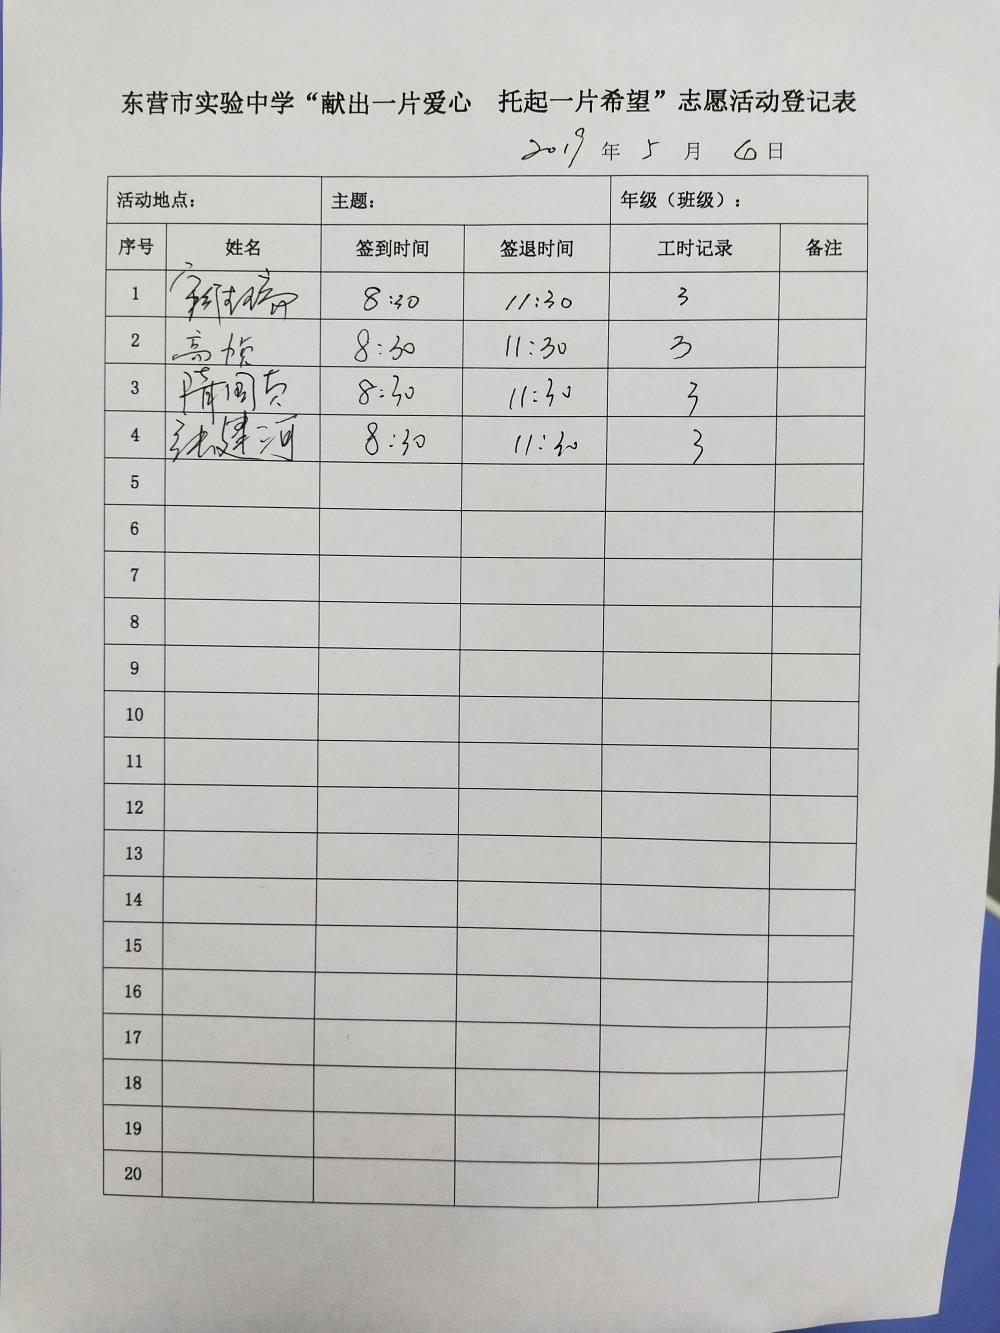 东营市实验中学“献出一片爱心 托起一片希望”志愿活动登记表
2019 年 5 月 6 日
活动地点： 主题： 年级（班级）：
序号 姓名 签到时间 签退时间 工时记录 备注
1 8:30 11:30 3
2 高桢 8:30 11:30 3
3 隋国贞 8:30 11:30 3
4 张建河 8:30 11:30 3
5
6
7
8
9
10
11
12
13
14
15
16
17
18
19
20